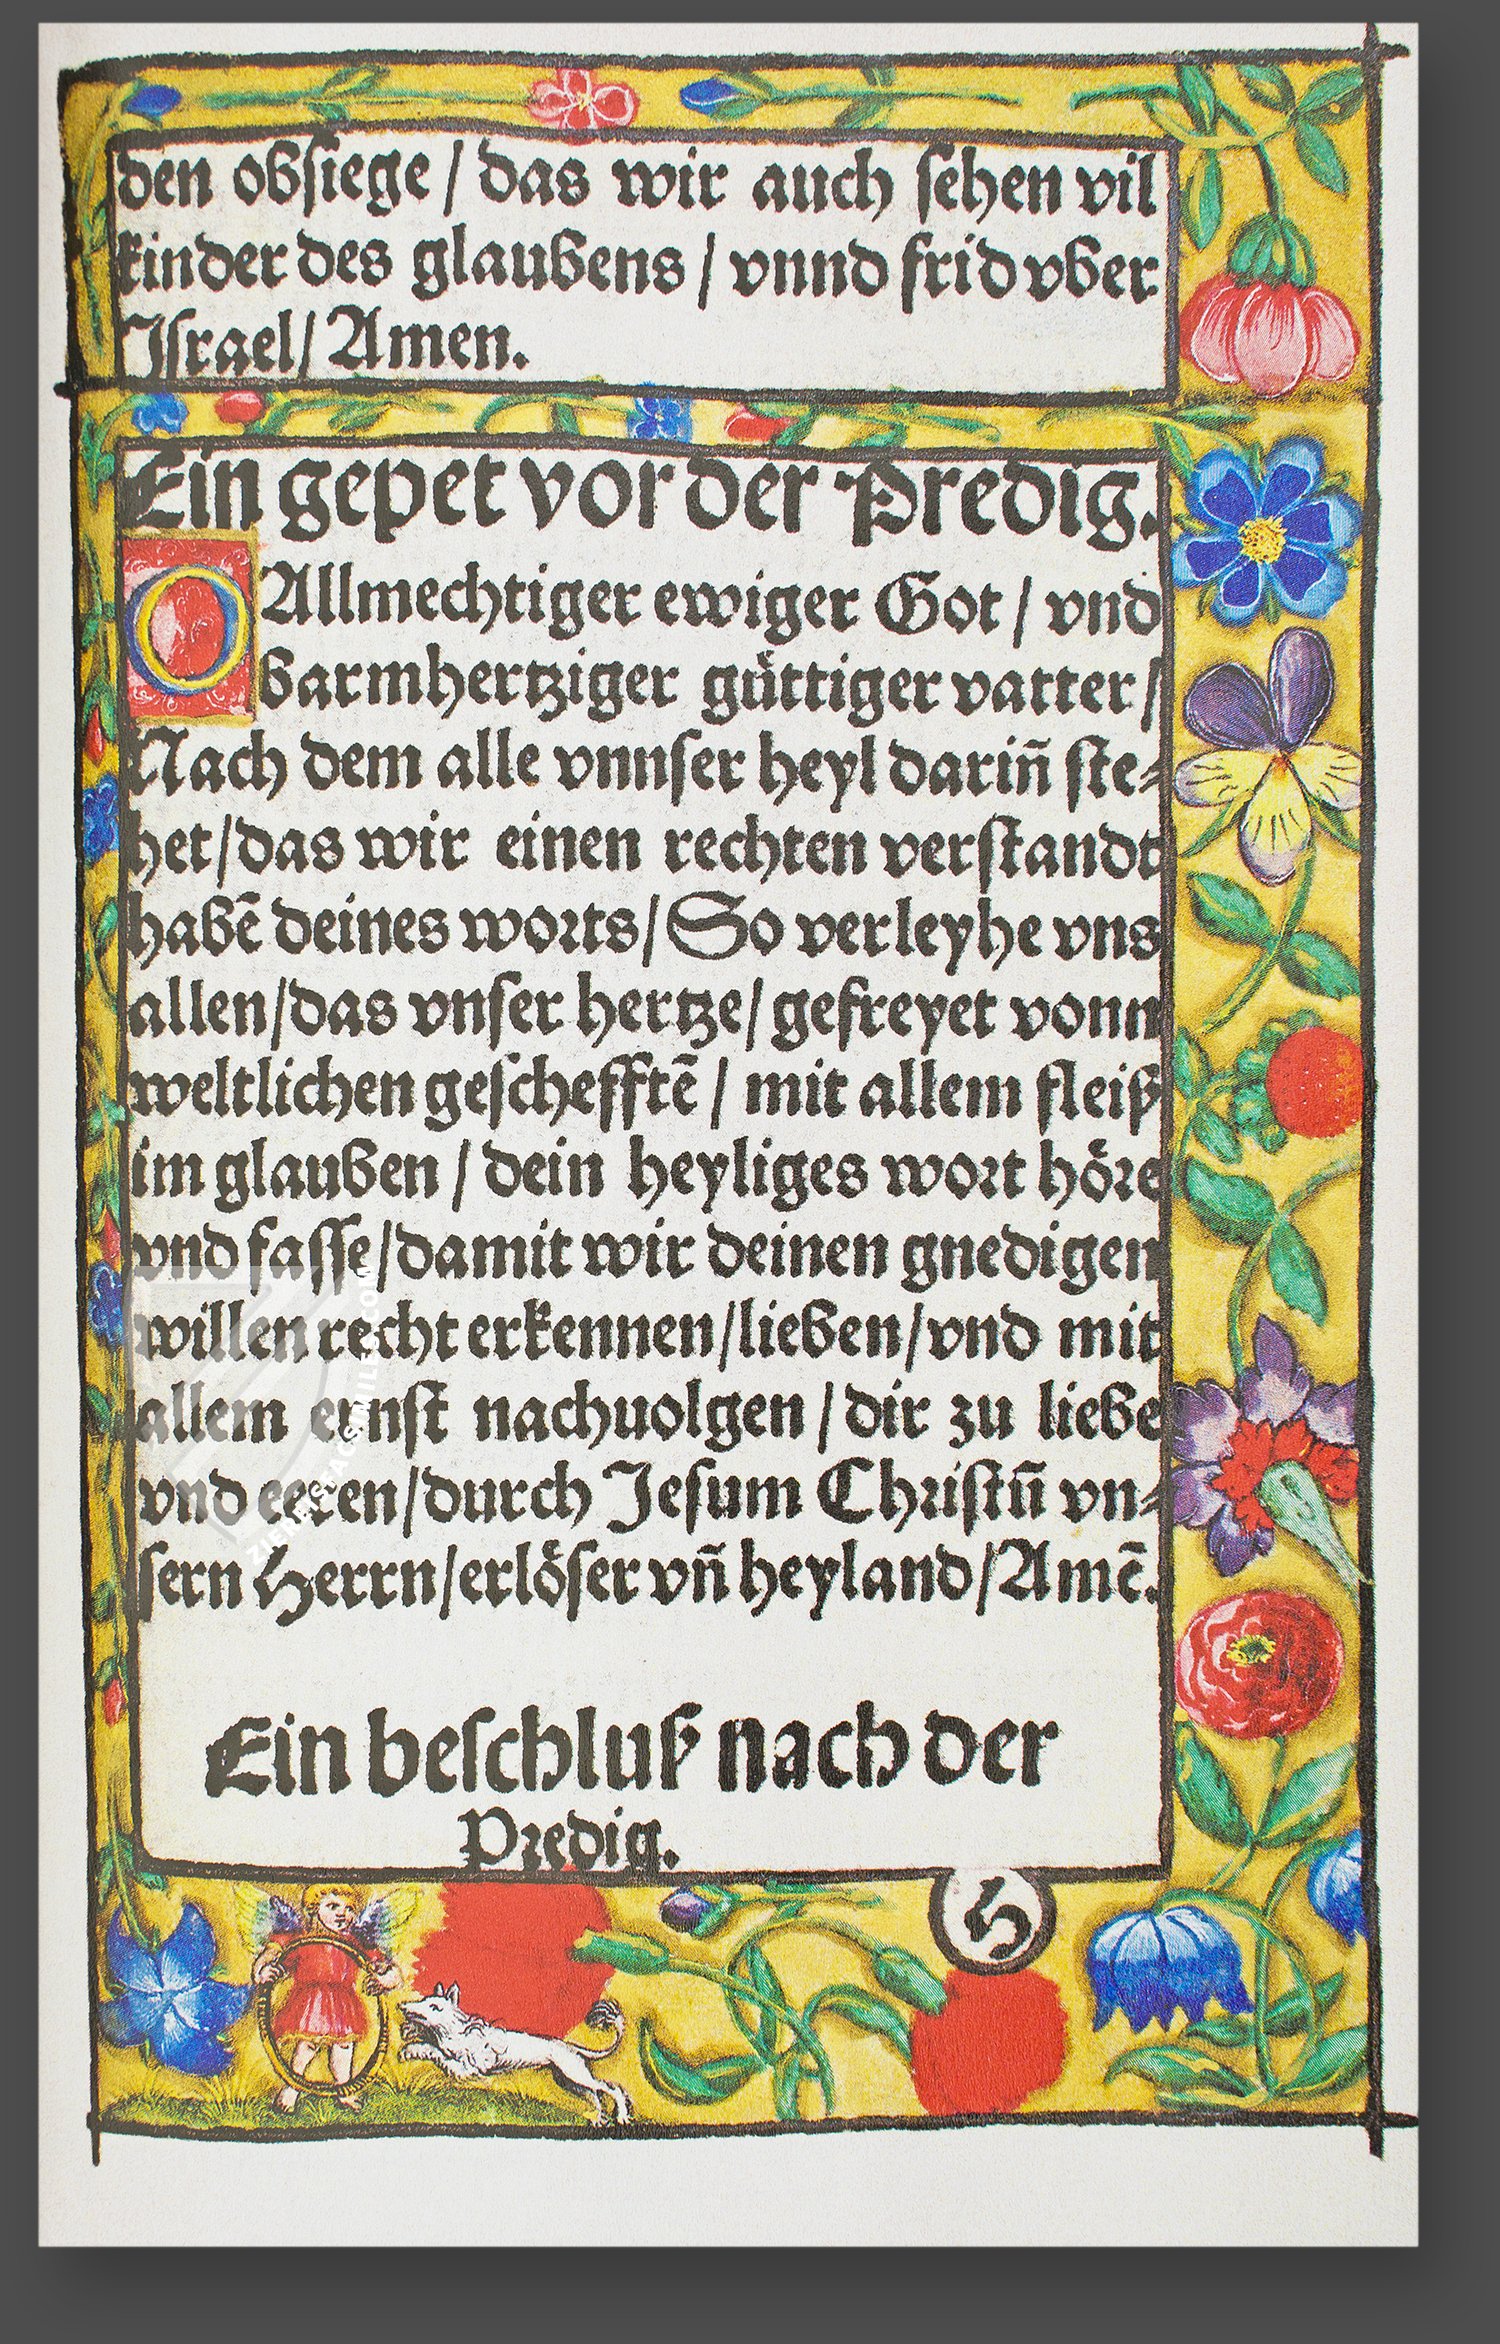 den obſiege / das wir auch ſehen vil
kinder des glaubens / vnnd frid vber
Iſrael / Amen.
Ein gepet vor der Predig.
O Allmechtiger ewiger Got / vnd
barmhertziger guͤttiger vatter /
Nach dem alle vnnſer heyl darin̄ ſte⸗
het / das wir einen rechten verſtandt
habē deines worts / So verleyhe vns
allen / das vnſer hertze / gefreyet vonn
weltlichen geſchefftē / mit allem fleiß
im glauben / dein heyliges wort hoͤre
vnd faſſe / damit wir deinen gnedigen
willen recht erkennen / lieben / vnd mit
allem ernſt nachuolgen / dir zu liebe
vnd eeren / durch Jeſum Chriſtū vn⸗
ſern Herrn / erloͤſer vn̄ heyland / Amē.
Ein beſchluß nach der
Predig.
ZIEREISFACSIMILES.COM